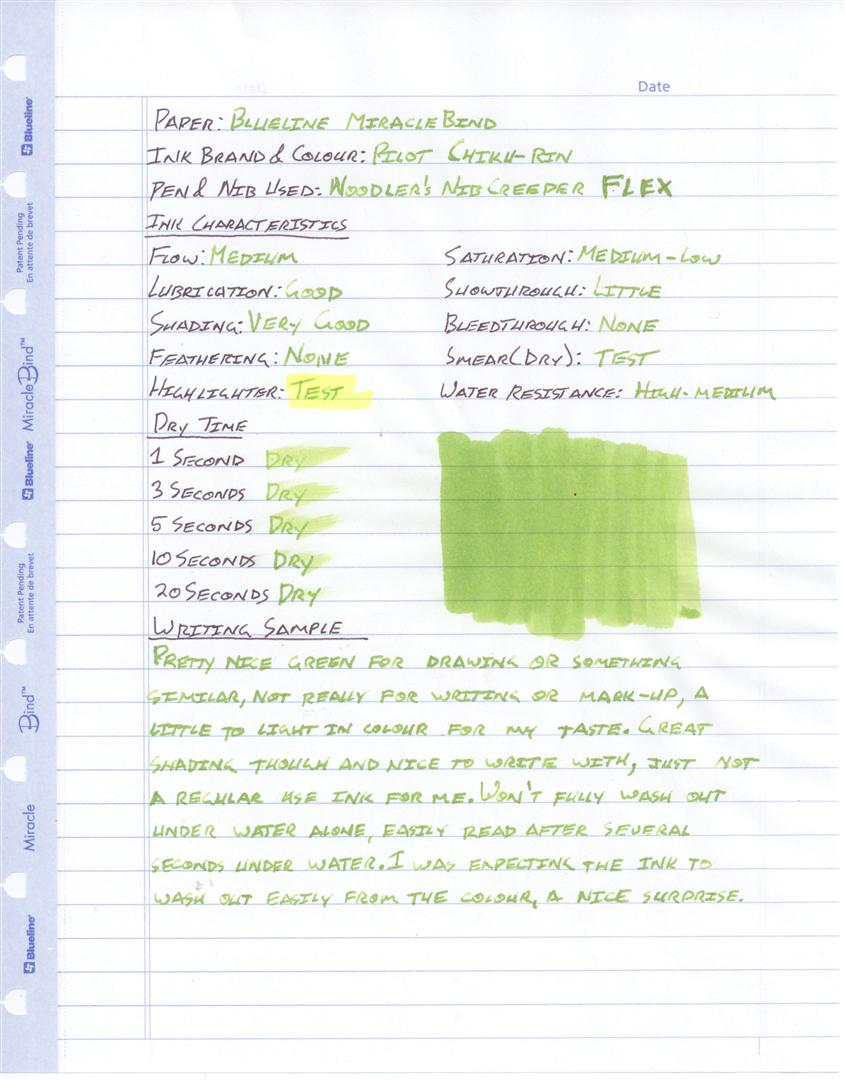 Date
PAPER: BLUELINE MIRACLEBIND
INK BRAND & COLOUR: PILOT CHIKU-RIN
PEN & NIB USED: NOODLER'S NIB CREEPER FLEX
INK CHARACTERISTICS
FLOW: MEDIUM
SATURATION: MEDIUM-LOW
LUBRICATION: GOOD
SHOWTHROUGH: LITTLE
SHADING: VERY GOOD
BLEEDTHROUGH: NONE
FEATHERING: NONE
SMEAR(DRY): TEST
HIGHLIGHTER: TEST
WATER RESISTANCE: HIGH-MEDIUM
DRY TIME
1 SECOND DRY
3 SECONDS DRY
5 SECONDS DRY
10 SECONDS DRY
20 SECONDS DRY
WRITING SAMPLE
PRETTY NICE GREEN FOR DRAWING OR SOMETHING
SIMILAR, NOT REALLY FOR WRITING OR MARK-UP, A
LITTLE TO LIGHT IN COLOUR FOR MY TASTE. GREAT
SHADING THOUGH AND NICE TO WRITE WITH, JUST NOT
A REGULAR USE INK FOR ME. WON'T FULLY WASH OUT
UNDER WATER ALONE, EASILY READ AFTER SEVERAL
SECONDS UNDER WATER. I WAS EXPECTING THE INK TO
WASH OUT EASILY FROM THE COLOUR, A NICE SURPRISE.
Blueline
Patent Pending
En attente de brevet
Blueline MiracleBind™
Patent Pending
En attente de brevet
Bind™
Miracle
Blueline